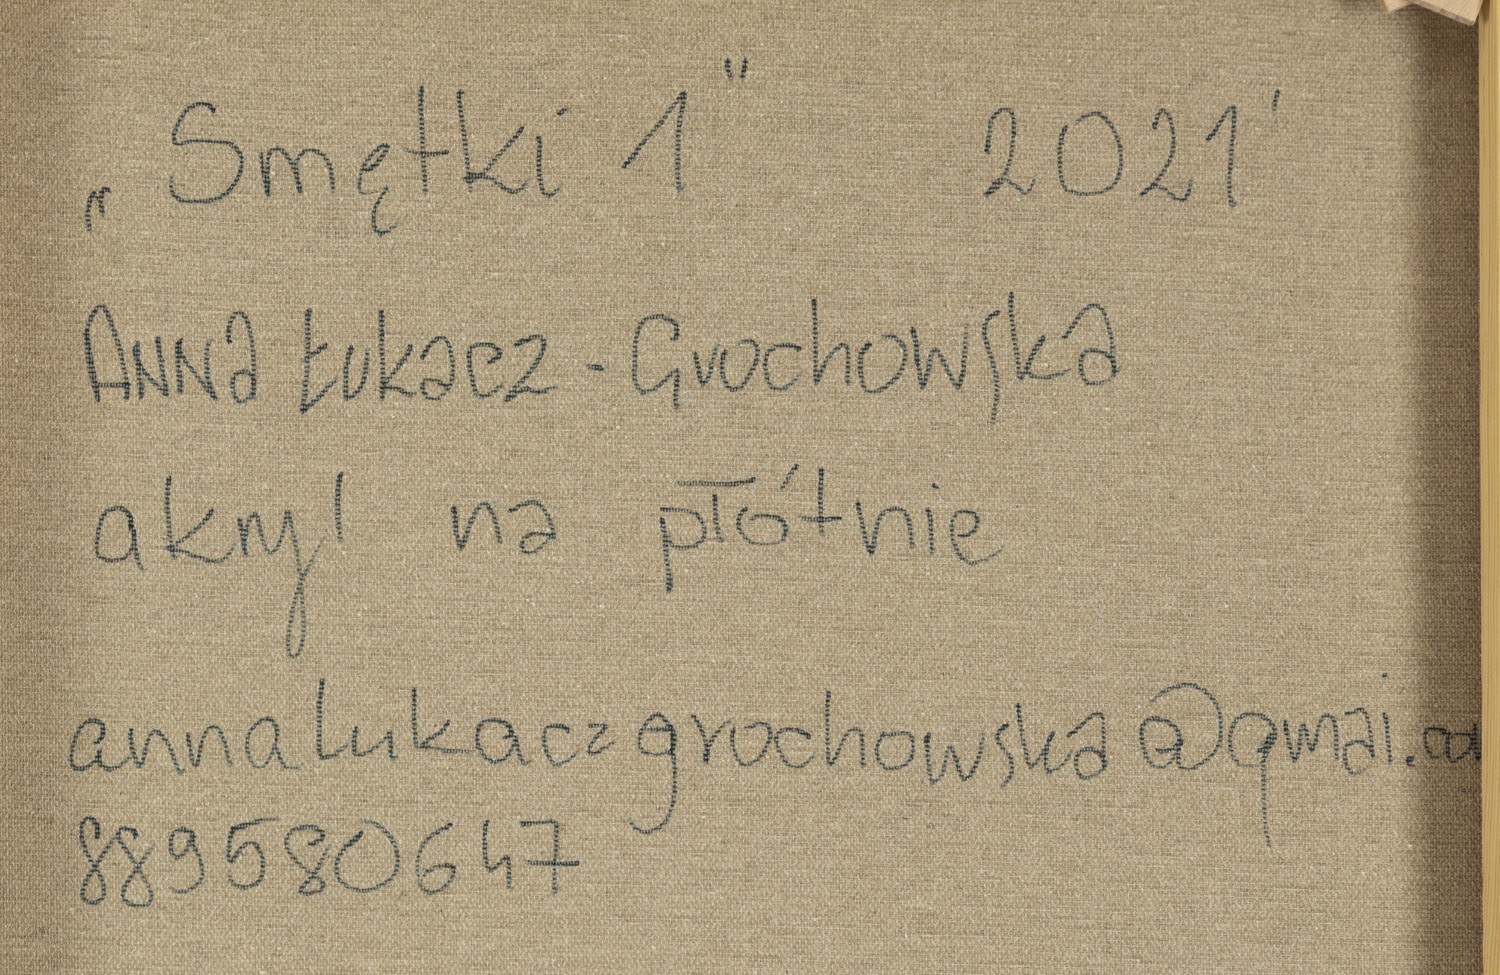 „Smętki 1" 2021'
ANNA ŁUKACZ-Grochowska
akryl na płótnie
annalukaczgrochowska@gmai.co
889580647